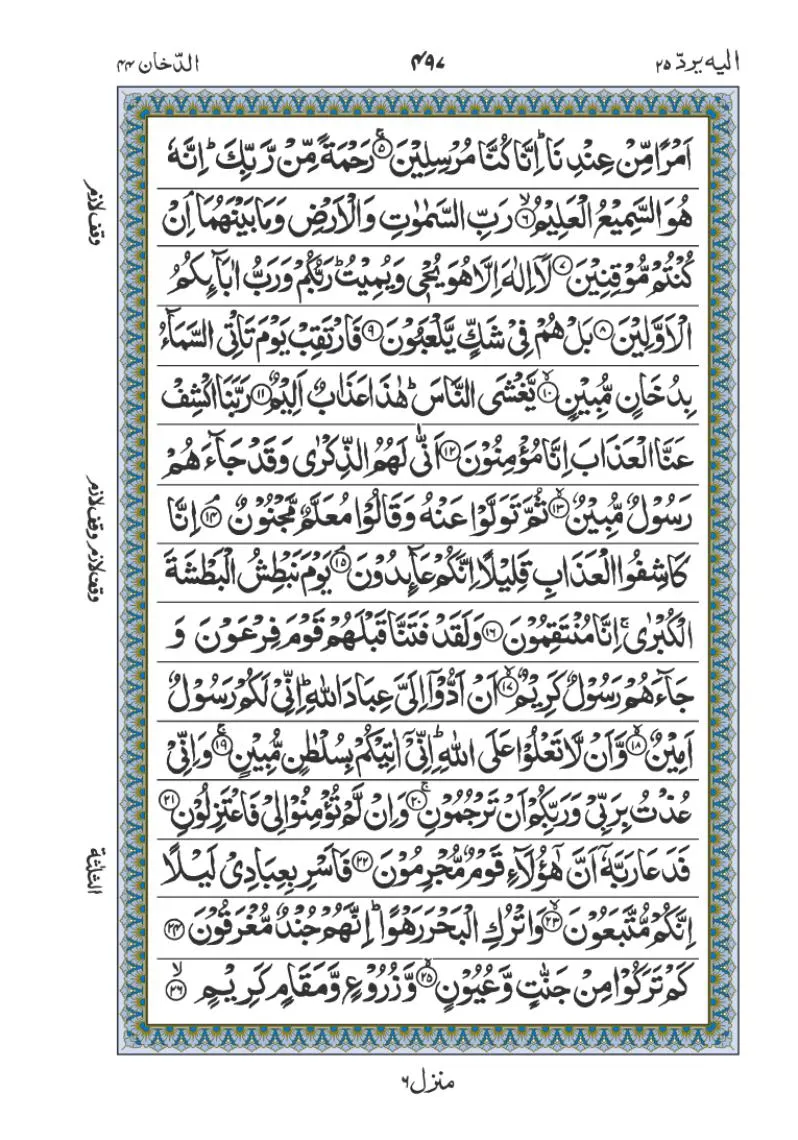 الیه یردّ ۲۵
۴۹۷
الدّخان ۴۴
اَمْرًا مِّنْ عِنْدِنَا ؕ اِنَّا كُنَّا مُرْسِلِیْنَ ۚ﴿۵﴾ رَحْمَةً مِّنْ رَّبِّكَ ؕ اِنَّهٗ
هُوَ السَّمِیْعُ الْعَلِیْمُ ۙ﴿۶﴾ رَبِّ السَّمٰوٰتِ وَ الْاَرْضِ وَمَا بَیْنَهُمَا ۘ اِنْ
كُنْتُمْ مُّوْقِنِیْنَ ﴿۷﴾ لَاۤ اِلٰهَ اِلَّا هُوَ یُحْیٖ وَ یُمِیْتُ ؕ رَبُّكُمْ وَرَبُّ اٰبَآئِكُمُ
الْاَوَّلِیْنَ ﴿۸﴾ بَلْ هُمْ فِیْ شَكٍّ یَّلْعَبُوْنَ ﴿۹﴾ فَارْتَقِبْ یَوْمَ تَاْتِی السَّمَآءُ
بِدُخَانٍ مُّبِیْنٍ ۙ﴿۱۰﴾ یَّغْشَی النَّاسَ ؕ هٰذَا عَذَابٌ اَلِیْمٌ ﴿۱۱﴾ رَبَّنَا اكْشِفْ
عَنَّا الْعَذَابَ اِنَّا مُؤْمِنُوْنَ ﴿۱۲﴾ اَنّٰی لَهُمُ الذِّكْرٰی وَ قَدْ جَآءَهُمْ
رَسُوْلٌ مُّبِیْنٌ ۙ﴿۱۳﴾ ثُمَّ تَوَلَّوْا عَنْهُ وَ قَالُوْا مُعَلَّمٌ مَّجْنُوْنٌ ۘ﴿۱۴﴾ اِنَّا
كَاشِفُوا الْعَذَابِ قَلِیْلًا اِنَّكُمْ عَآئِدُوْنَ ۘ﴿۱۵﴾ یَوْمَ نَبْطِشُ الْبَطْشَةَ
الْكُبْرٰی ۚ اِنَّا مُنْتَقِمُوْنَ ﴿۱۶﴾ وَلَقَدْ فَتَنَّا قَبْلَهُمْ قَوْمَ فِرْعَوْنَ وَ
جَآءَهُمْ رَسُوْلٌ كَرِیْمٌ ۙ﴿۱۷﴾ اَنْ اَدُّوْۤا اِلَیَّ عِبَادَ اللّٰهِ ؕ اِنِّیْ لَكُمْ رَسُوْلٌ
اَمِیْنٌ ۙ﴿۱۸﴾ وَّ اَنْ لَّا تَعْلُوْا عَلَی اللّٰهِ ؕ اِنِّیْۤ اٰتِیْكُمْ بِسُلْطٰنٍ مُّبِیْنٍ ۚ﴿۱۹﴾ وَ اِنِّیْ
عُذْتُ بِرَبِّیْ وَرَبِّكُمْ اَنْ تَرْجُمُوْنِ ۫﴿۲۰﴾ وَ اِنْ لَّمْ تُؤْمِنُوْا لِیْ فَاعْتَزِلُوْنِ ﴿۲۱﴾
فَدَعَا رَبَّهٗۤ اَنَّ هٰۤؤُلَآءِ قَوْمٌ مُّجْرِمُوْنَ ﴿۲۲﴾ فَاَسْرِ بِعِبَادِیْ لَیْلًا
اِنَّكُمْ مُّتَّبَعُوْنَ ۙ﴿۲۳﴾ وَ اتْرُكِ الْبَحْرَ رَهْوًا ؕ اِنَّهُمْ جُنْدٌ مُّغْرَقُوْنَ ﴿۲۴﴾
كَمْ تَرَكُوْا مِنْ جَنّٰتٍ وَّ عُیُوْنٍ ۙ﴿۲۵﴾ وَّ زُرُوْعٍ وَّ مَقَامٍ كَرِیْمٍ ۙ﴿۲۶﴾
وقف لازم
وقف لازم وقف لازم
الثلثة
منزل ۶